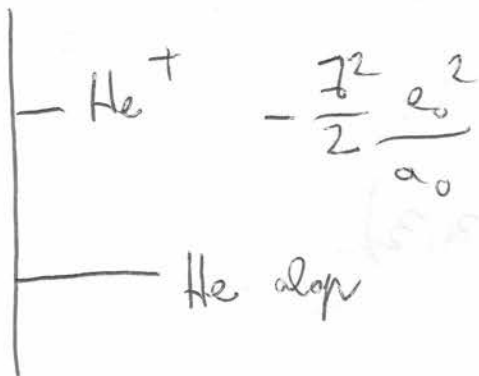 He⁺ - Z²/2 e₀²/a₀
He alap